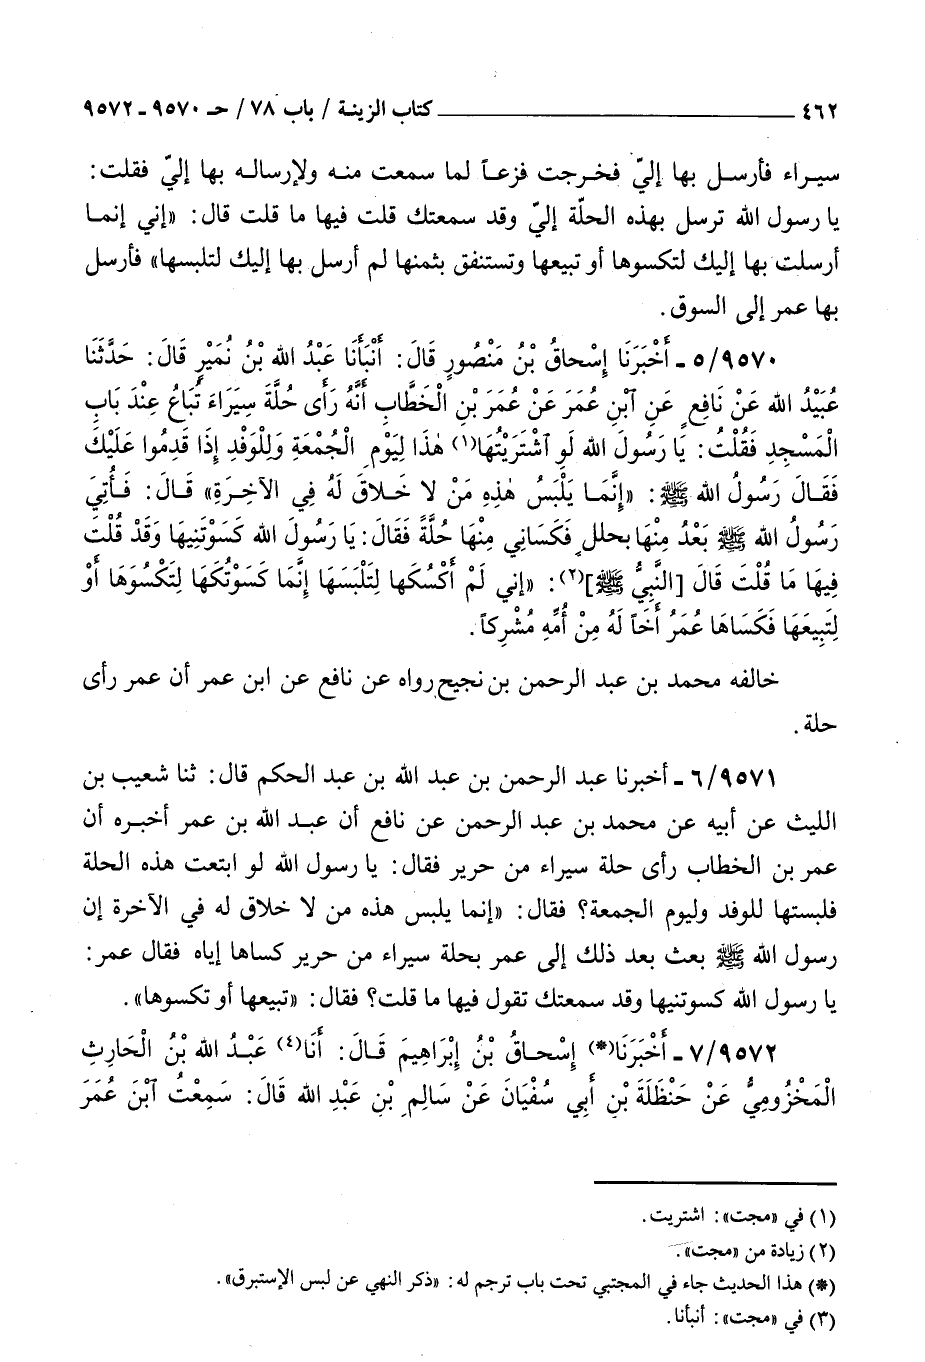 ٤٦٢ ــــــــــــــــــــــــــــــــ كتاب الزينة / باب ٧٨/ حـ ٩٥٧٠ ـ ٩٥٧٢
سيراء فأرسل بها إليّ فخرجت فزعاً لما سمعت منه ولإرساله بها إليّ فقلت:
يا رسول الله ترسل بهذه الحلّة إليّ وقد سمعتك قلت فيها ما قلت قال: «إني إنما
أرسلت بها إليك لتكسوها أو تبيعها وتستنفق بثمنها لم أرسل بها إليك لتلبسها» فأرسل
بها عمر إلى السوق.
٥/٩٥٧٠ ـ أَخْبَرَنَا إِسْحاقُ بْنُ مَنْصُورٍ قَالَ: أَنْبَأَنَا عَبْدُ الله بْنُ نُمَيْرٍ قَالَ: حَدَّثَنَا
عُبَيْدُ الله عَنْ نَافِعٍ عَنِ ٱبْنِ عُمَرَ عَنْ عُمَرَ بْنِ الْخَطَّابِ أَنَّهُ رَأى حُلَّةَ سِيَرَاءَ تُبَاعُ عِنْدَ بَابِ
الْمَسْجِدِ فَقُلْتُ: يَا رَسُولَ الله لَوِ ٱشْتَرَيْتُهَا(١) هٰذَا لِيَوْمِ الْجُمْعَةِ وَلِلْوَفْدِ إِذَا قَدِمُوا عَلَيْكَ
فَقَالَ رَسُولُ الله ﷺ: «إِنَّمَا يَلْبَسُ هٰذِهِ مَنْ لا خَلاقَ لَهُ فِي الآخِرَةِ» قَالَ: فَأُتِيَ
رَسُولُ الله ﷺ بَعْدُ مِنْهَا بحلل فَكَسَانِي مِنْهَا حُلَّةً فَقَالَ: يَا رَسُولَ الله كَسَوْتَنِيهَا وَقَدْ قُلْتَ
فِيهَا مَا قُلْتَ قَالَ [النَّبِيُّ ﷺ](٢): «إني لَمْ أَكْسُكَها لِتَلْبَسَهَا إِنَّمَا كَسَوْتُكَهَا لِتَكْسُوَهَا أَوْ
لِتَبِيعَهَا فَكَسَاهَا عُمَرُ أَخَاً لَهُ مِنْ أُمِّهِ مُشْرِكاً.
خالفه محمد بن عبد الرحمن بن نجيح رواه عن نافع عن ابن عمر أن عمر رأى
حلة.
٦/٩٥٧١ ـ أخبرنا عبد الرحمن بن عبد الله بن عبد الحكم قال: ثنا شعيب بن
الليث عن أبيه عن محمد بن عبد الرحمن عن نافع أن عبد الله بن عمر أخبره أن
عمر بن الخطاب رأى حلة سيراء من حرير فقال: يا رسول الله لو ابتعت هذه الحلة
فلبستها للوفد وليوم الجمعة؟ فقال: «إنما يلبس هذه من لا خلاق له في الآخرة إن
رسول الله ﷺ بعث بعد ذلك إلى عمر بحلة سيراء من حرير كساها إياه فقال عمر:
يا رسول الله كسوتنيها وقد سمعتك تقول فيها ما قلت؟ فقال: «تبيعها أو تكسوها».
٧/٩٥٧٢ ـ أَخْبَرَنَا(*) إِسْحاقُ بْنُ إِبْرَاهِيمَ قَالَ: أَنَا(٤) عَبْدُ الله بْنُ الْحَارِثِ
الْمَخْزُومِيُّ عَنْ حَنْظَلَةَ بْنِ أَبِي سُفْيَانَ عَنْ سَالِمِ بْنِ عَبْدِ الله قَالَ: سَمِعْتُ ٱبْنَ عُمَرَ
(١) في «مجت»: اشتريت.
(٢) زيادة من «مجت».
(*) هذا الحديث جاء في المجتبي تحت باب ترجم له: «ذكر النهي عن لبس الإستبرق».
(٣) في «مجت»: أنبأنا.